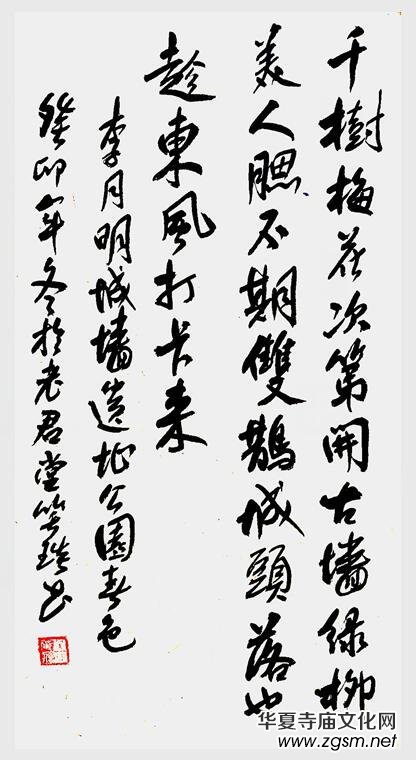 千樹梅花次第開古墙绿柳
美人腮不期雙鵲城頭落也
趁東風打卡来
李月明城墙遗址公園春色
癸卯年冬於老君堂
华夏寺庙文化网
www.zgsm.net